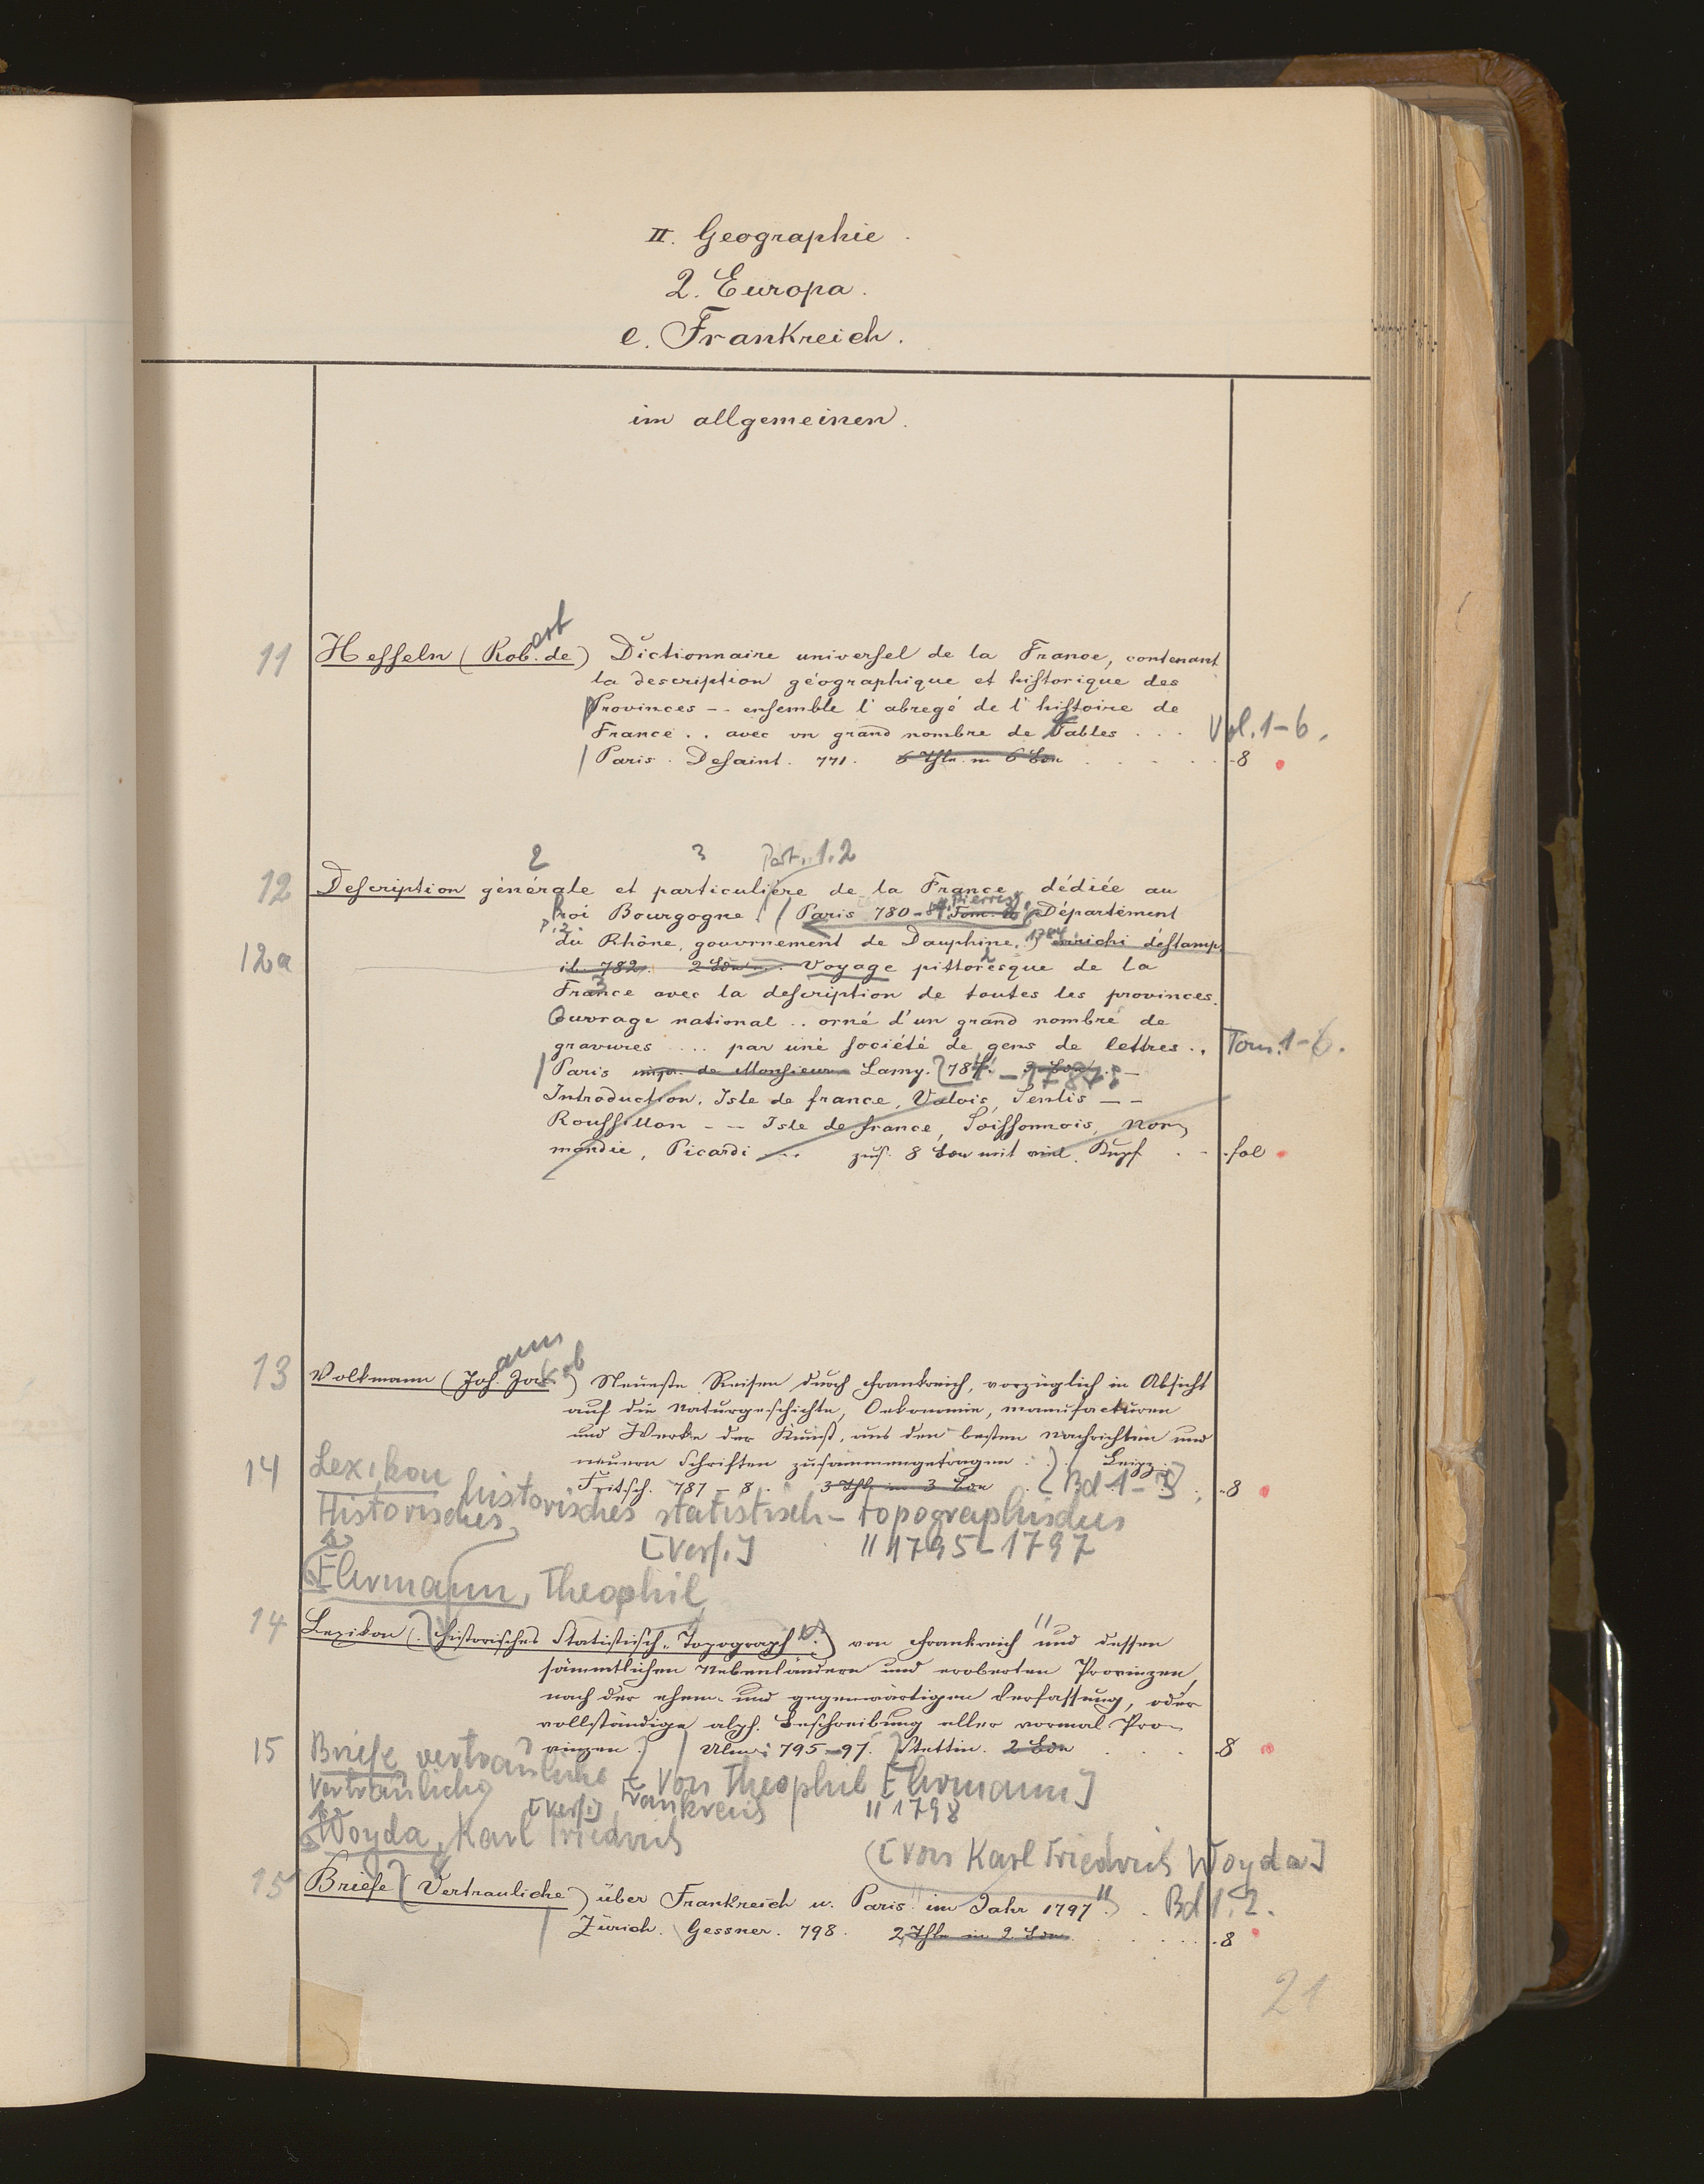 II. Geographie.
2. Europa.
e. Frankreich.
im allgemeinen.
ert
11 Hesseln (Rob. de) Dictionnaire universel de la France, contenant
la description géographique et historique des
Provinces -- ensemble l'abregé de l'histoire de
France . . avec un grand nombre de Tables . . . Vol. 1-6.
Paris. Desaint. 771. 6 Thle. in 6 Bdn . . . . 8
2 3 Part. 1.2
12 Description générale et particulière de la France, dédiée au
Pierres
Roi Bourgogne. Paris 780-84. Tom. Département
P. 2. 1784
du Rhône, gouvernement de Dauphine. enrichi d'estamp.
12a il. 782. 2 Bdn . . Voyage pittoresque de la
France avec la description de toutes les provinces.
Ouvrage national .. orné d'un grand nombre de
gravures .... par une société de gens de lettres .. Tom. 1-6.
Paris impr. de Monsieur Lamy. 784. - 1787.
Introduction. Isle de france, Valois, Senlis --
Roussillon -- Isle de france, Soissonnois, Nor
mandie, Picardi ... zus. 8 Bdn mit viel. Kupf . . fol
ann ob
13 Volkmann (Joh. Jak.) Neueste Reisen durch Frankreich, vorzüglich in Absicht
auf die Naturgeschichte, Oekonomie, Manufacturen
und Werke der Kunst, aus den besten Nachrichten und
neuern Schriften zusammengetragen . . . Leipz.
Fritsch. 787-8. 3 Thle in 3 Bdn Bd 1-3. 8
14 Lexikon historisches statistisch-topographisches
Historisches
[Verf.] " 1795-1797
Ehrmann, Theophil
14 Lexikon (historisches Statistisch-Topograph.) von Frankreich und dessen
sämmtlichen Nebenländern und eroberten Provinzen,
nach der ehem. und gegenwärtigen Verfassung, oder
vollständige alph. Beschreibung aller vormal. Pro-
vinzen. Ulm: 795-97. Stettin. 2 Bdn . . . 8
15 Briefe, vertrauliche [von Theophil Ehrmann]
Vertrauliche [Verf.] Frankreich " 1798
Woyda, Karl Friedrich
[von Karl Friedrich Woyda]
15 Briefe (Vertrauliche) über Frankreich u. Paris im Jahr 1797. Bd 1.2.
Zürich. Gessner. 798. 2 Thle in 2 Bdn . . . 8
21